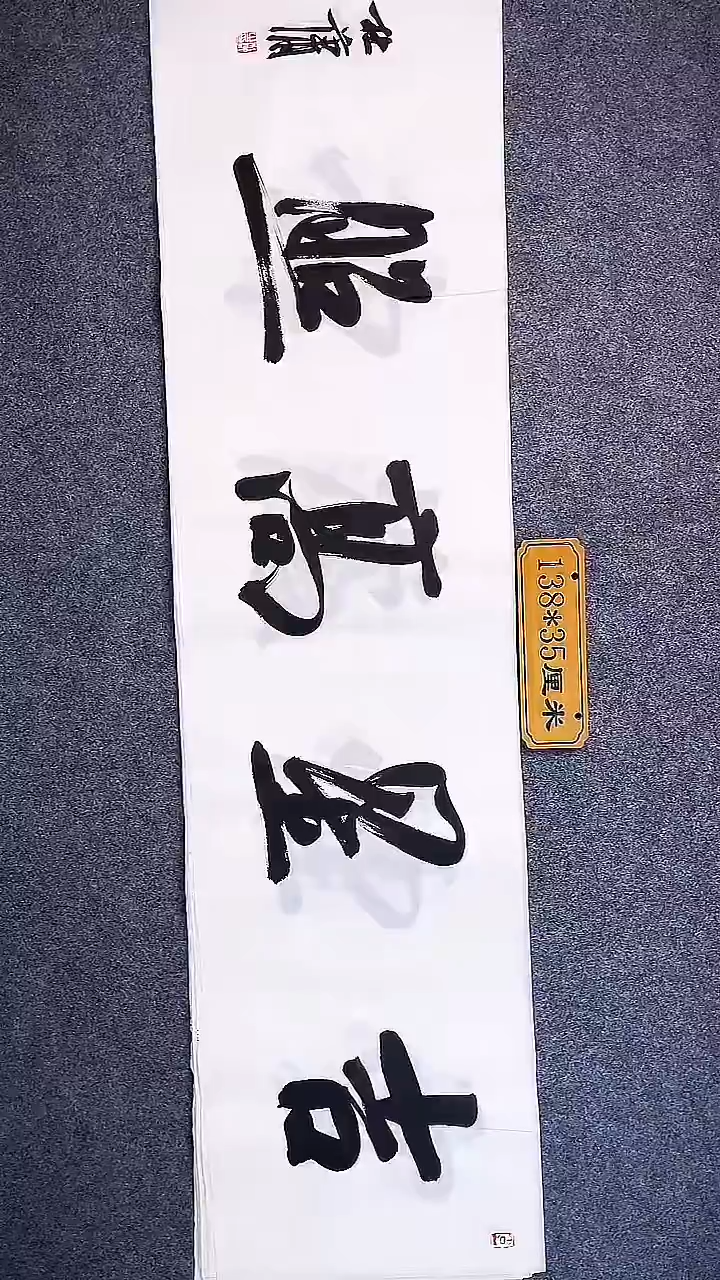 吉星高照
138*35厘米